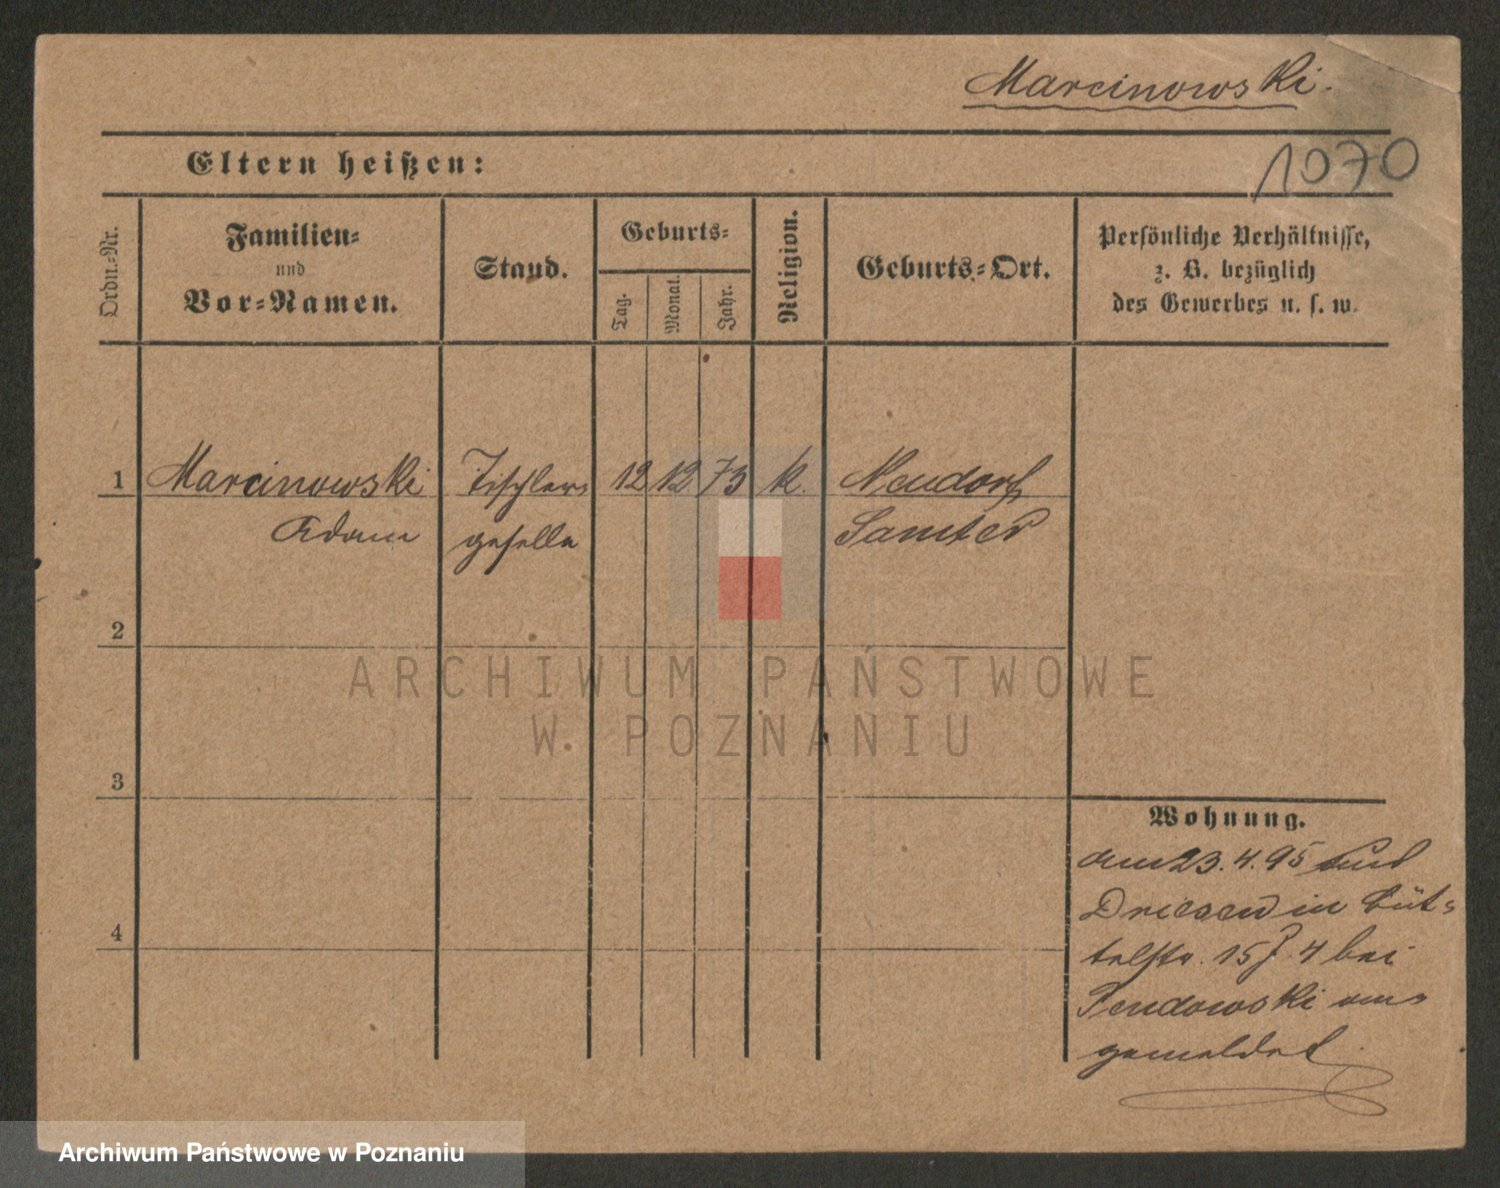 Marcinowski.
1070
Eltern heißen:
Ordn.-Nr.
Familien-
und
Vor-Namen.
Stand.
Geburts-
Tag.
Monat.
Jahr.
Religion.
Geburts-Ort.
Persönliche Verhältnisse,
z. B. bezüglich
des Gewerbes u. s. w.
1 Marcinowski Tischler- 12 12 73 k. Neudorf
Adam geselle Samter
2
3
4
Wohnung.
am 23.4.95
Driesen in Büt-
telstr. 15 4 bei
an-
gemeldet.
ARCHIWUM PAŃSTWOWE
W POZNANIU
Archiwum Państwowe w Poznaniu